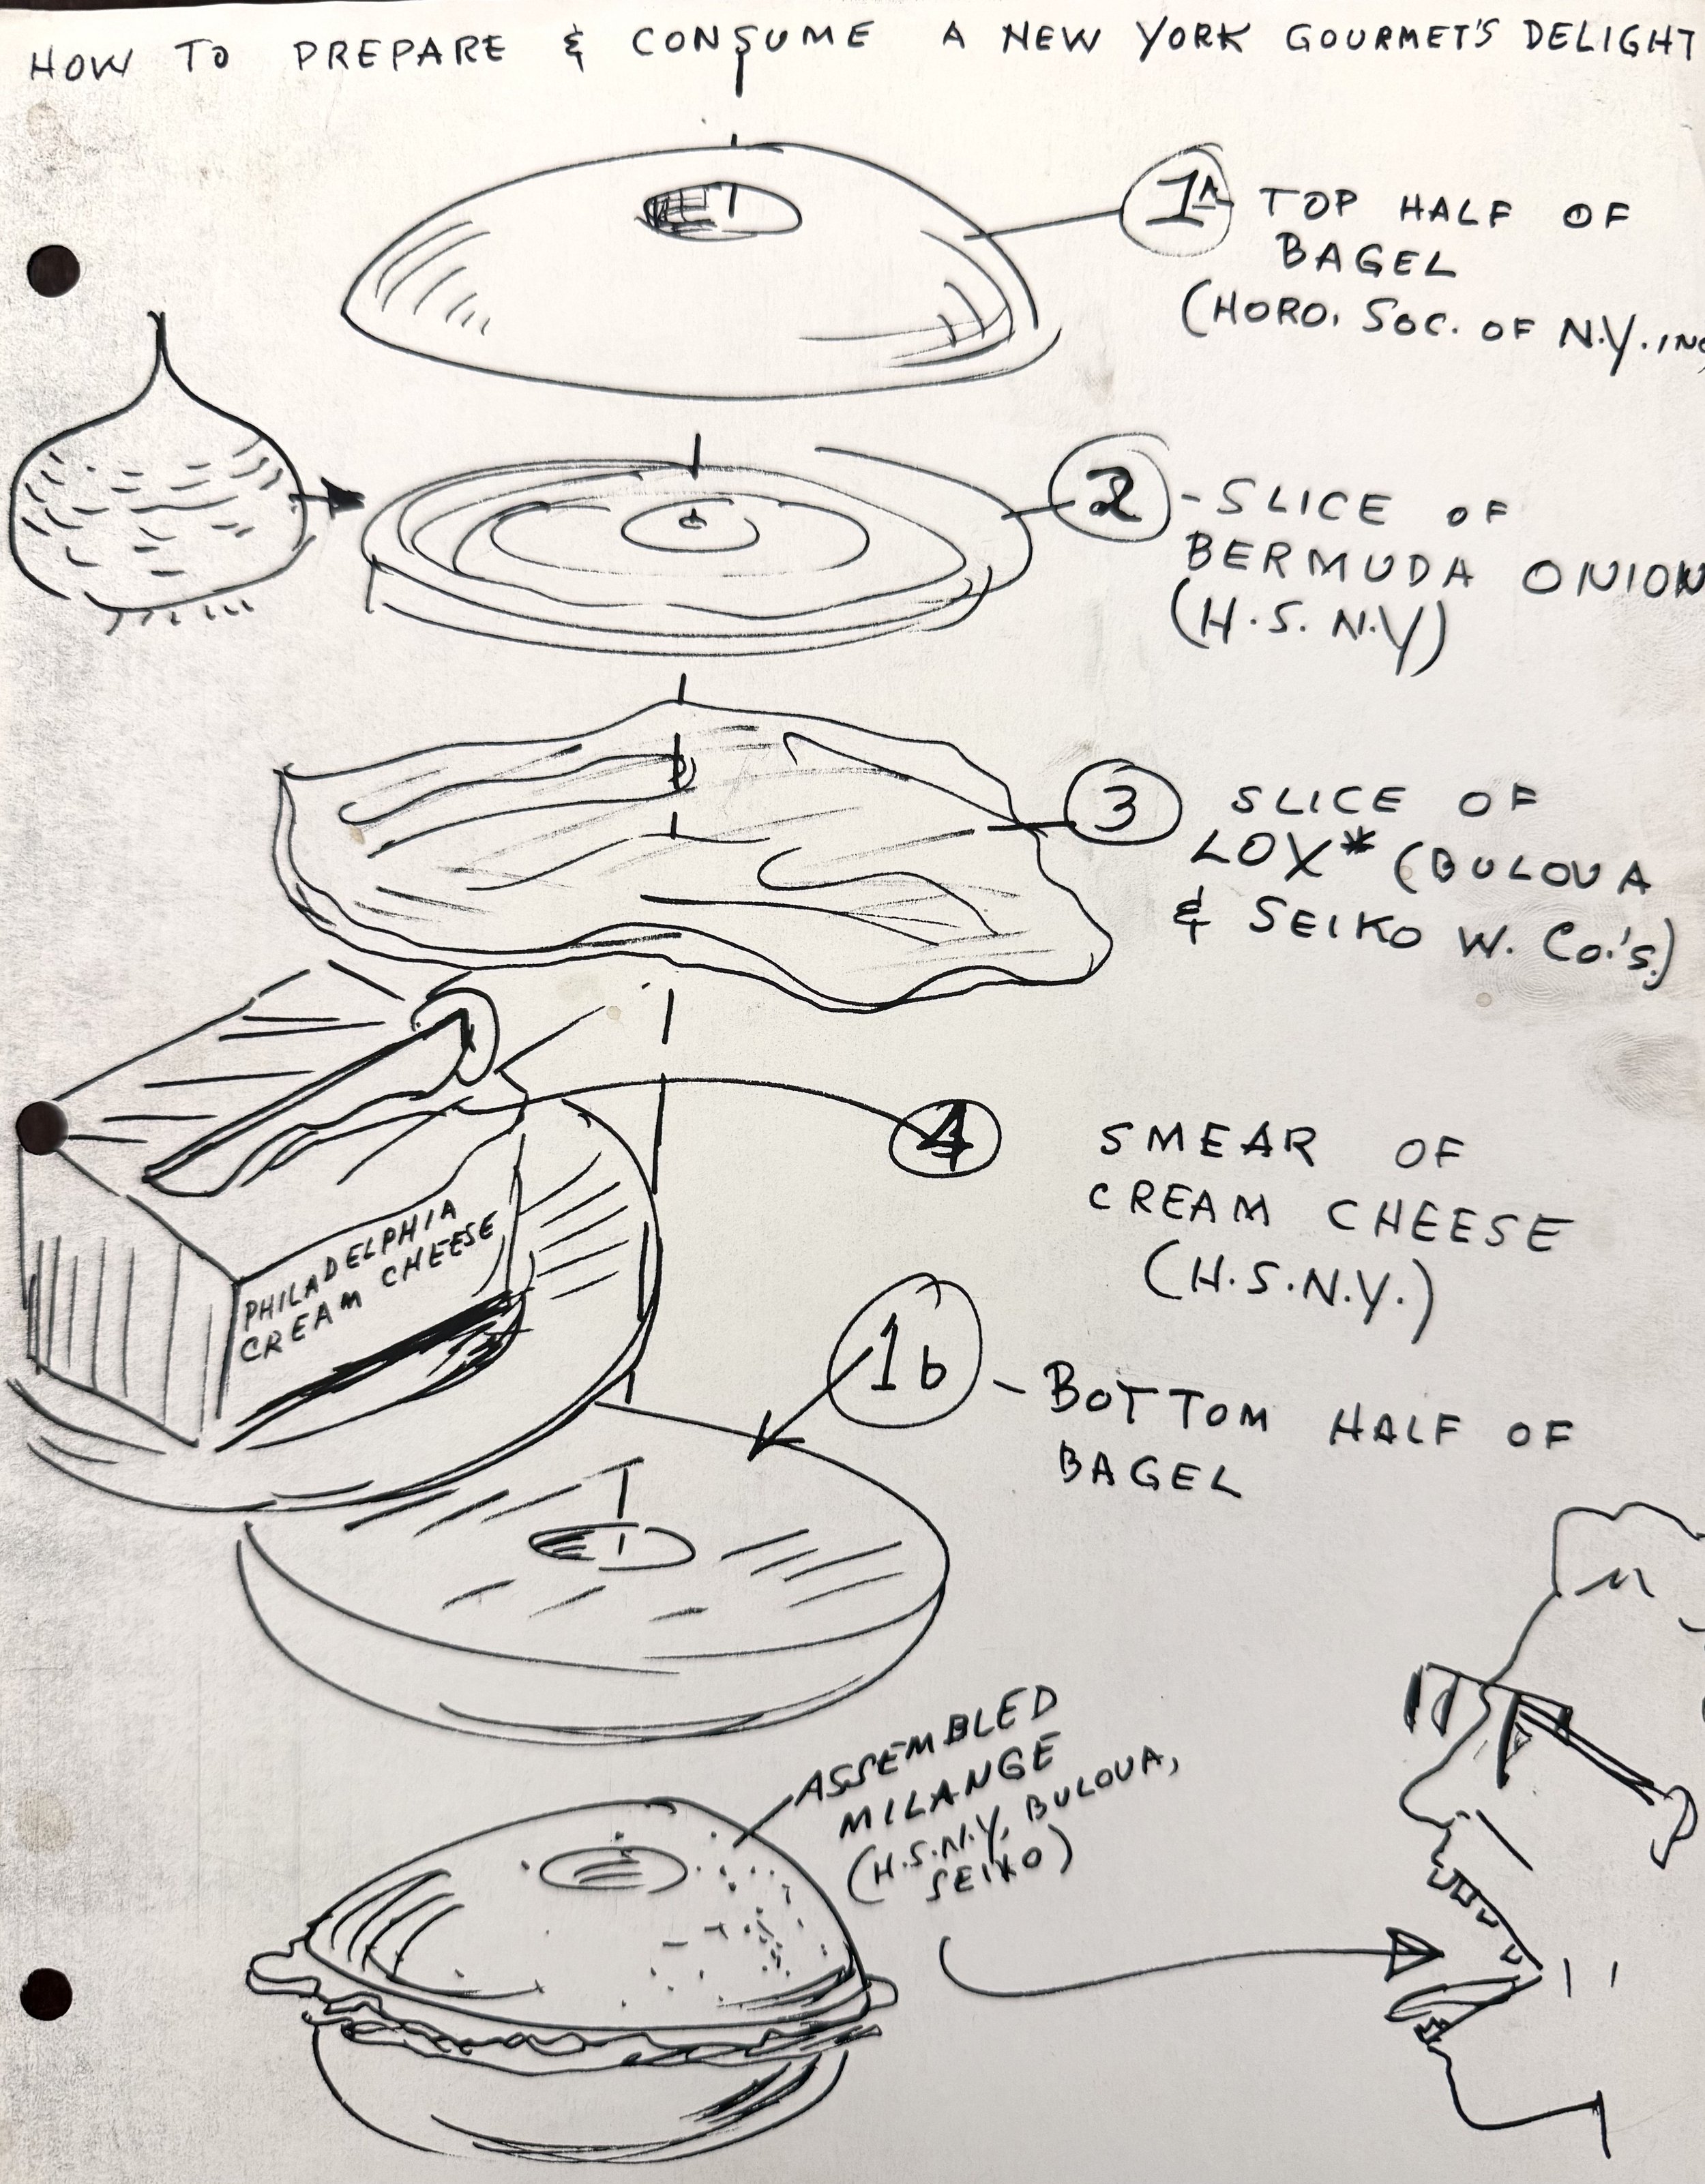 HOW TO PREPARE & CONSUME A NEW YORK GOURMET'S DELIGHT
1A TOP HALF OF
BAGEL
(HORO. SOC. OF N.Y. INC,
2 - SLICE OF
BERMUDA ONION
(H.S. N.Y)
3 SLICE OF
LOX* (BULOVA
& SEIKO W. Co.'s.)
4 SMEAR OF
CREAM CHEESE
(H.S.N.Y.)
PHILADELPHIA
CREAM CHEESE
1b - BOTTOM HALF OF
BAGEL
ASSEMBLED
MILANGE
(H.S.N.Y, BULOVA,
SEIKO)